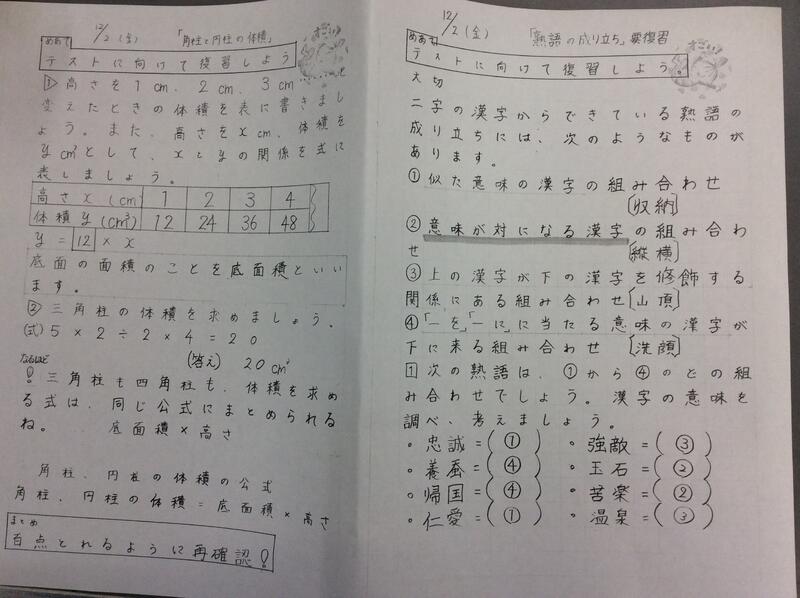 12/2(金) 「角柱と円柱の体積」
めあて
テストに向けて復習しよう
すごい!
①高さを1cm、2cm、3cm
変えたときの体積を表に書きまし
ょう。また、高さをxcm、体積を
ycm³として、xとyの関係を式に
表しましょう。
高さx(cm) 1 2 3 4
体積y(cm³) 12 24 36 48
y=12×x
底面の面積のことを底面積といい
ます。
②三角柱の体積を求めましょう。
(式)5×2÷2×4=20
(答え) 20cm³
なるほど
!三角柱も四角柱も、体積を求め
る式は、同じ公式にまとめられる
ね。 底面積×高さ
角柱、円柱の体積の公式
角柱、円柱の体積=底面積×高さ
まとめ
百点とれるように再確認!
12/2(金) 「熟語の成り立ち」要復習
めあて
テストに向けて復習しよう。
すごい!
大切
二字の漢字からできている熟語の
成り立ちには、次のようなものが
あります。
①似た意味の漢字の組み合わせ
[収納]
②意味が対になる漢字の組み合わ
せ [縦横]
③上の漢字が下の漢字を修飾する
関係にある組み合わせ[山頂]
④「―を」「―に」に当たる意味の漢字が
下に来る組み合わせ [洗顔]
1次の熟語は、①から④のどの組
み合わせでしょう。漢字の意味を
調べ、考えましょう。
・忠誠=(①) ・強敵=(③)
・養蚕=(④) ・玉石=(②)
・帰国=(④) ・苦楽=(②)
・仁愛=(①) ・温泉=(③)